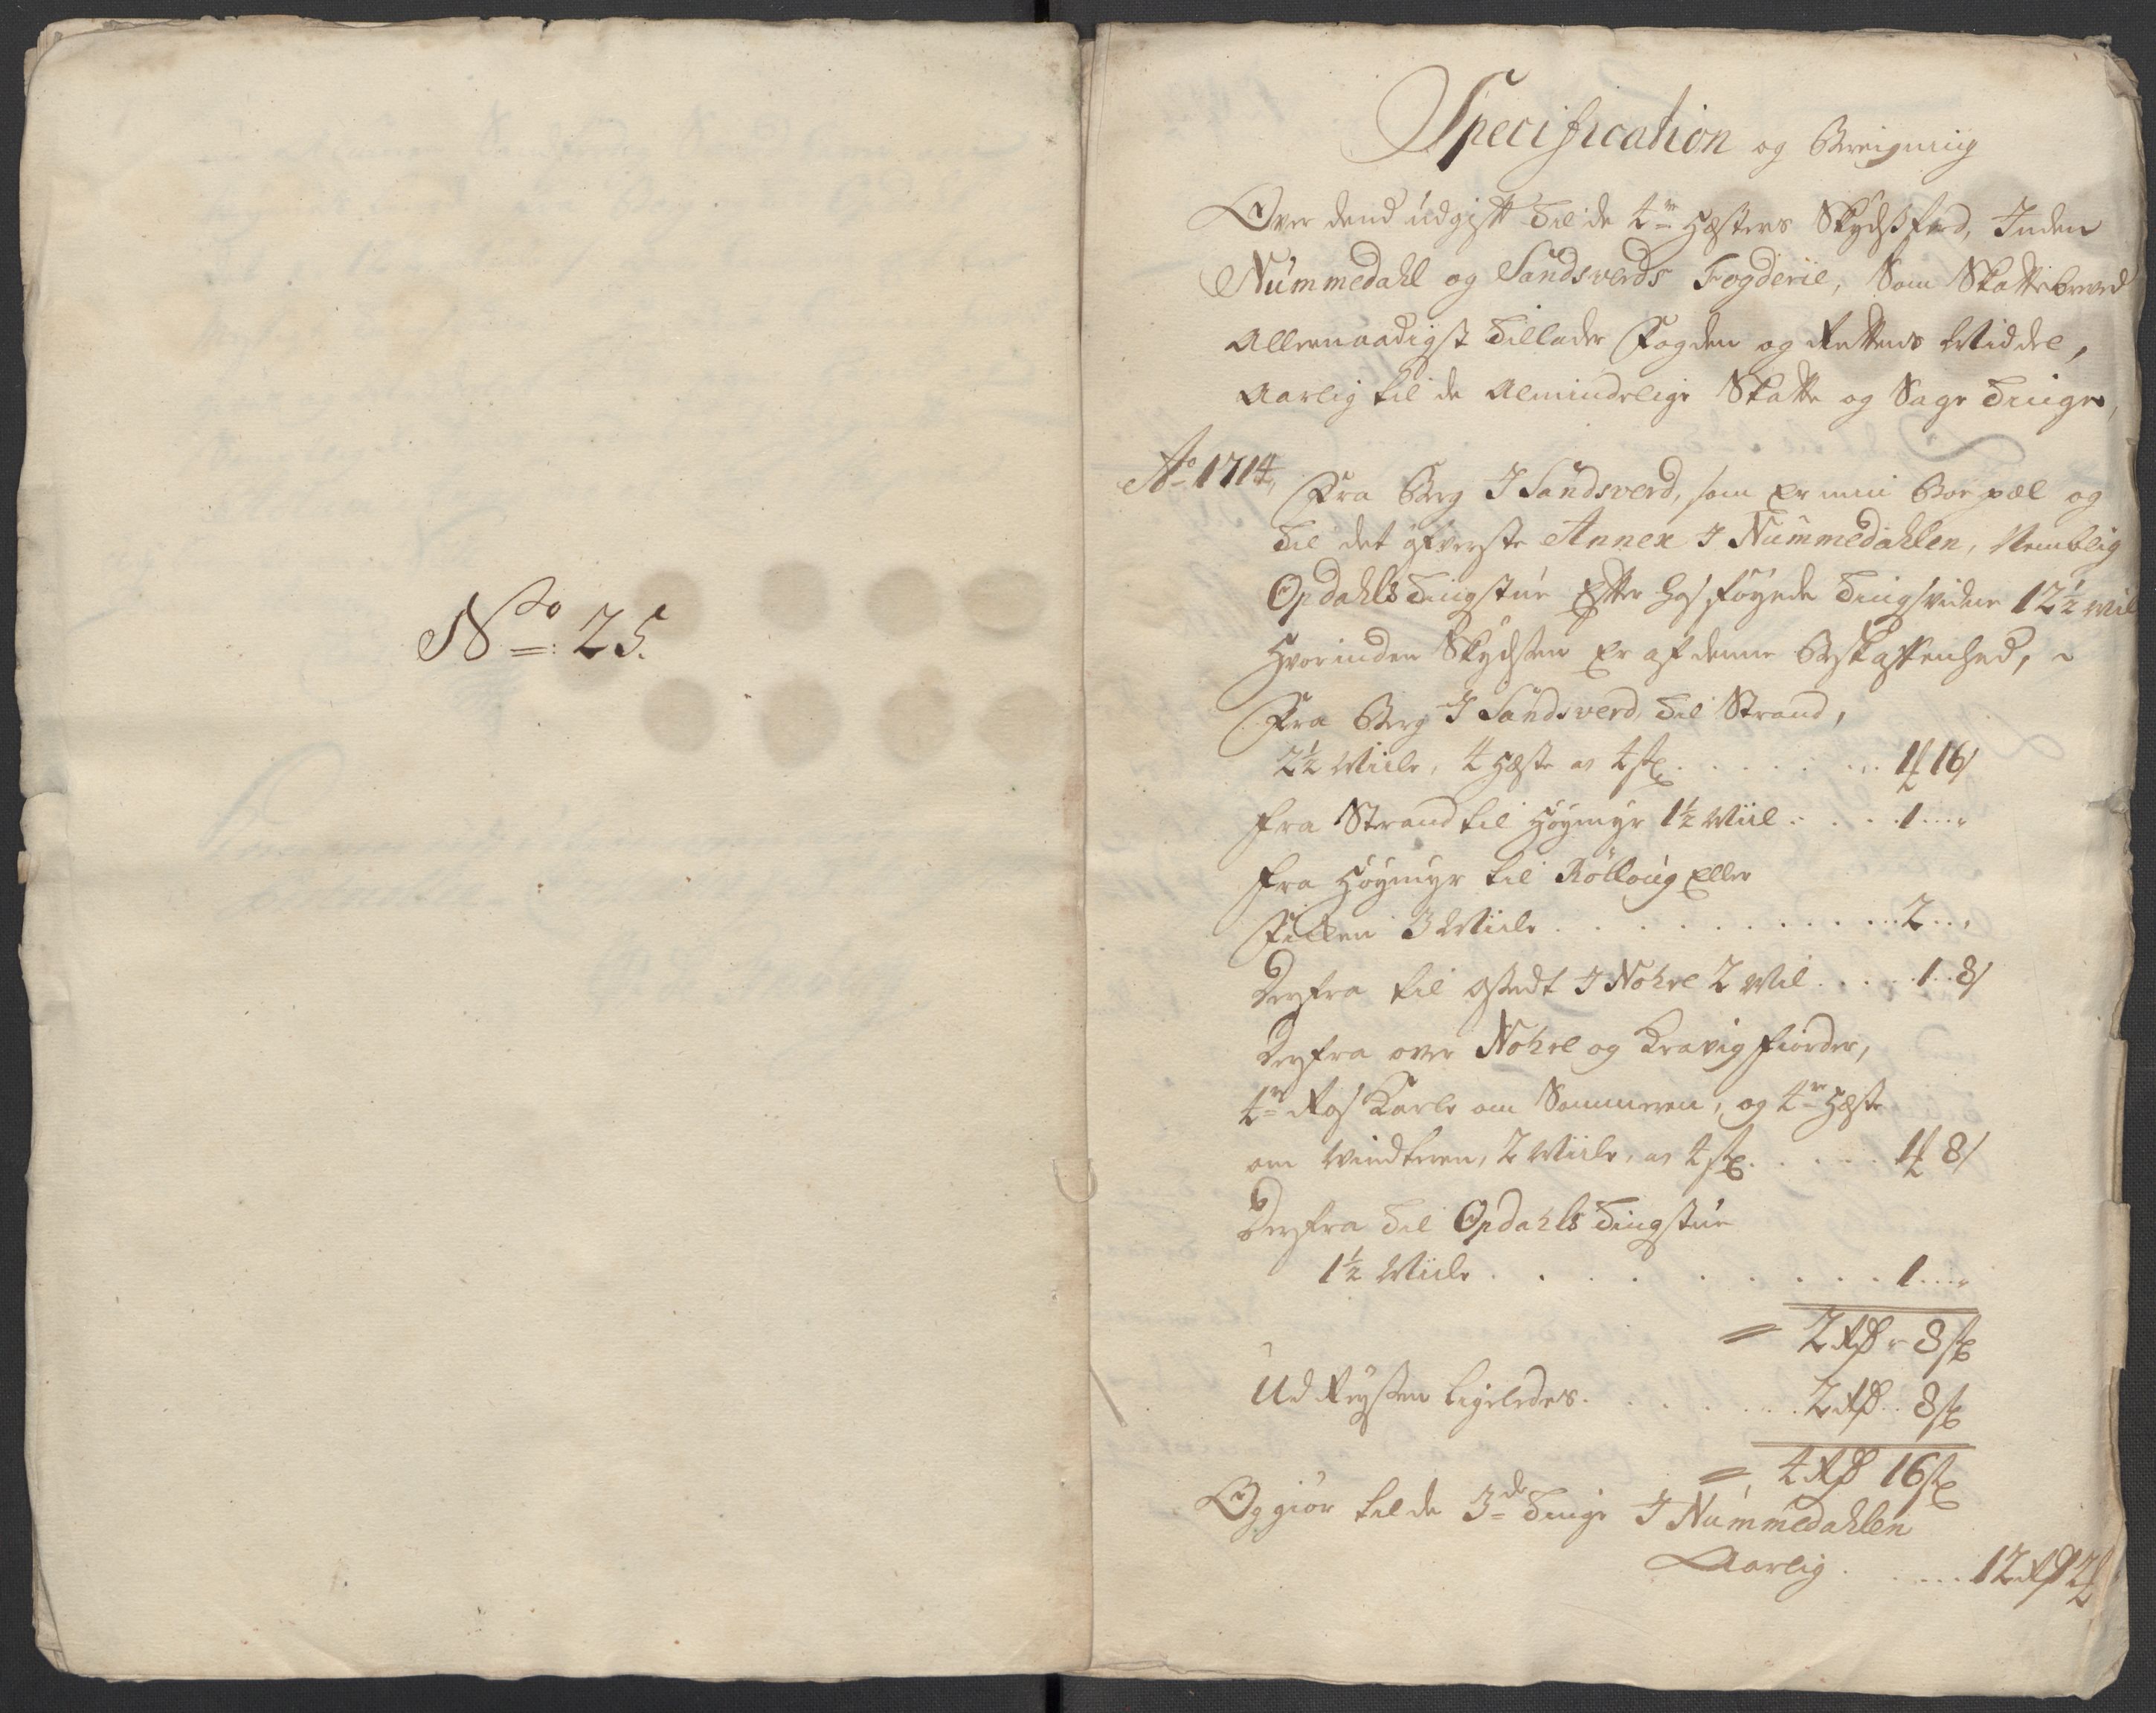 No: 25.
Specification og Bereigning
Over dend udgift Til de 4re Hæsters Skydsferd, Inden
Nummedahl og Sandsverds Fogderie, Som Skattebrevet
Allernaadigst Tillader Fogden og Rettens Middel,
Aarlig til de Almindelige Skatte og Sage Tinge,
Ao 1714, Fra Berg I Sandsverd, som Er min Boe pæl og
Til det øfverste Annex I Nummedahlen, Nemblig
Opdahls Tingstue Efter hosføyede Tingsvidne 12½ Mil
Hvorinden Skydsen Er af denne Beskaffenhed,
Fra Berg I Sandsverd, Til Strand,
2½ Miile, 4 Hæste a 4 sk . . . . 1 16
fra Strand til Høymyr 1½ Miil . . . . 1 . . .
fra Høymyr til Rolloug Eller
3 Miile . . . . 2 . . .
Derfra til I Nohre 2 Mil . . . . 1 . . 8
Derfra over Nohre og Kravig fiorder,
4re Roes Karle om Sommeren, og 4re Hæste
om Vindteren, 2 Miile, a 4 sk . . . . 1 8
Derfra Til Opdahls Tingstue
1½ Miile . . . . 1 . . .
= 2 Rd - 8 sk
Ud Reysen ligeledes . . . . 2 Rd . . 8 sk
= 4 Rd 16 sk
Og giør til de 3de Tinge I Nummedahlen
Aarlig . . . . 12 Rd 2